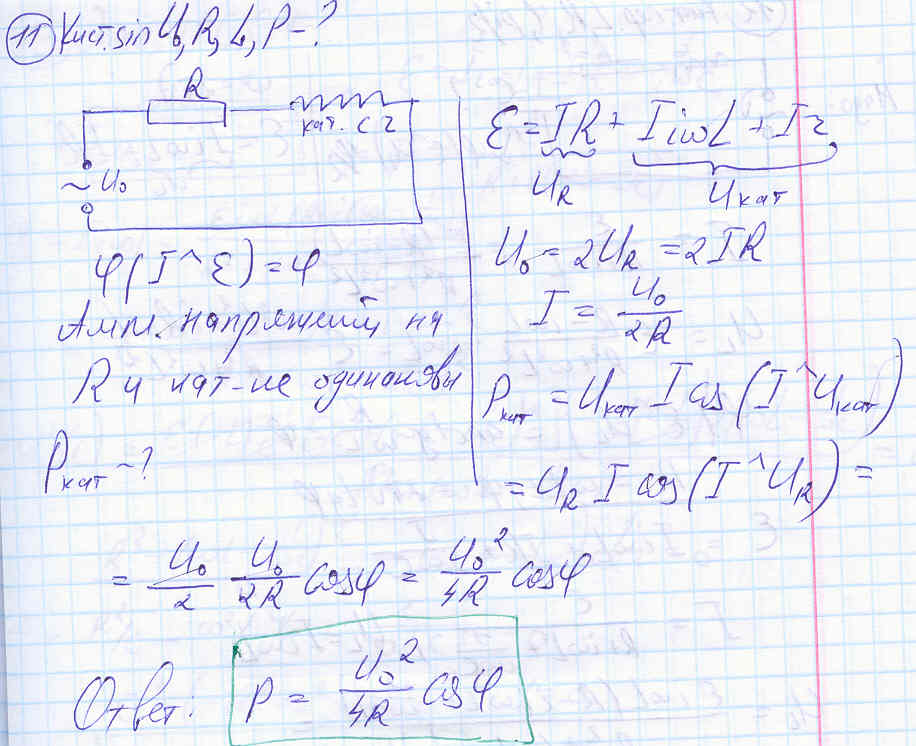 11 К ист. sin U₀, R, L, P - ?
R
кат. с r
~ U₀
φ(I ^ ℰ) = φ
Ампл. напряжений на
R и кат-ке одинаковы
Pкат - ?
ℰ = IR + IiωL + Ir
U_R Uкат
U₀ = 2U_R = 2IR
I = U₀/2R
Pкат = Uкат I cos(I ^ Uкат)
= U_R I cos(I ^ U_R) =
= U₀/2 U₀/2R cosφ = U₀²/4R cosφ
Ответ: P = U₀²/4R cosφ